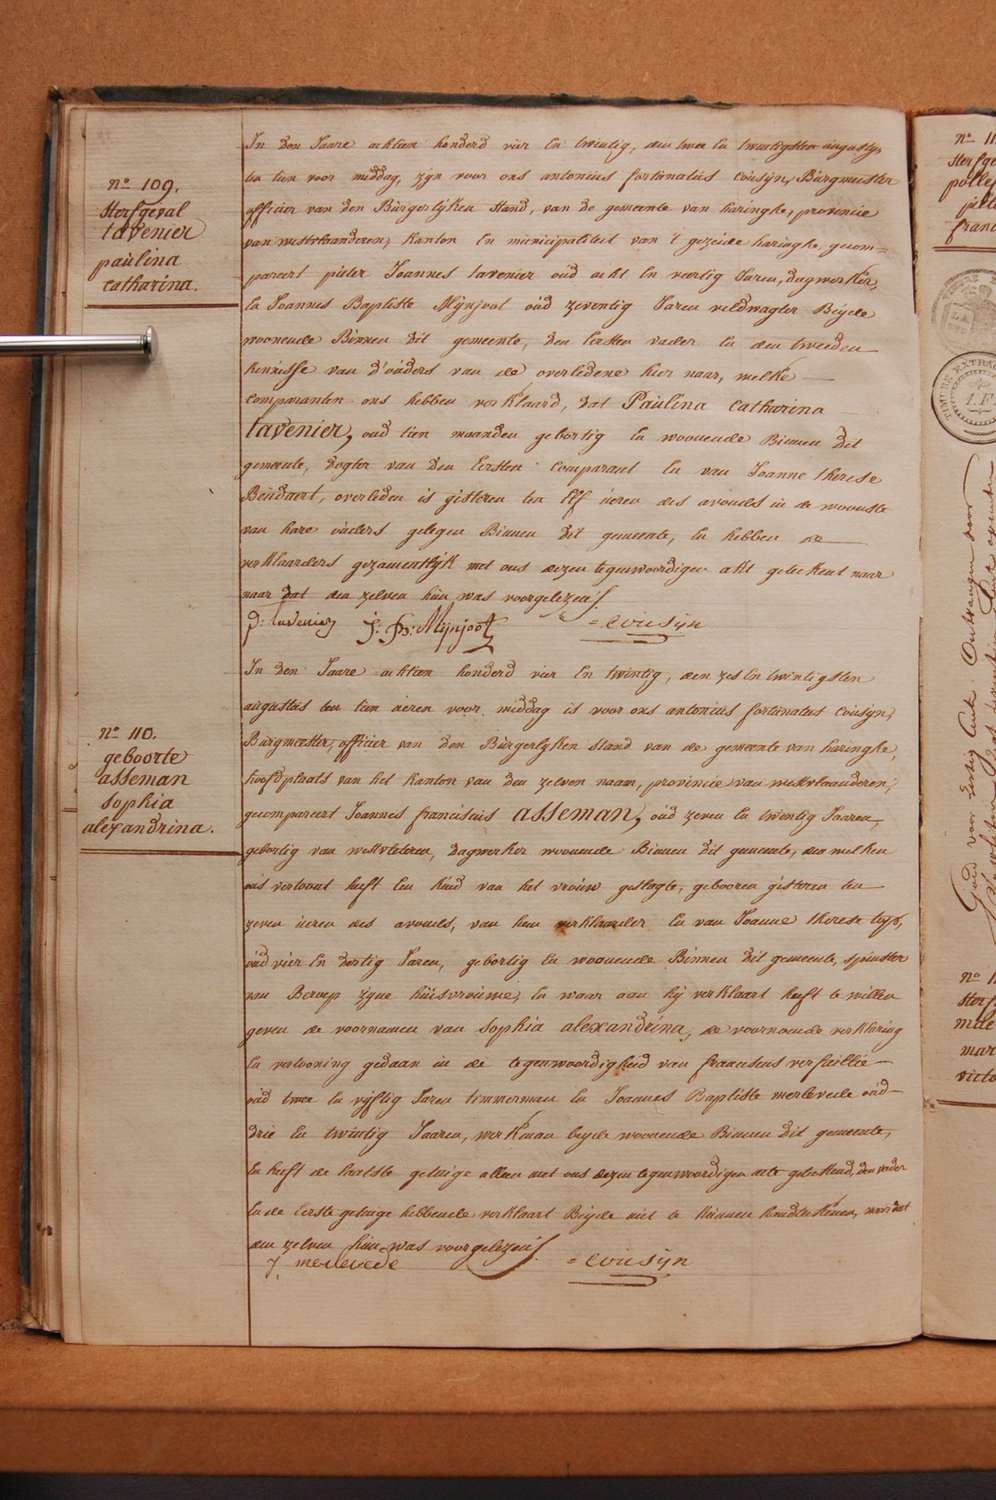 nº 109.
sterfgeval
lavenier
paulina
catharina.
In den Jaare achtien honderd vier En twintig, den twee En twintigsten augusty,
ten tien voor middag, zyn voor ons antonius fortunatus Cousyn, Burgmeester
officier van den Burgerlyken stand, van de gemeente van haringhe, provincie
van westvlaanderen, kanton En municipaliteit van 't gezeide haringhe, gecom-
pareert pieter Joannes lavenier oud acht En veertig Jaren, dagwerker,
En Joannes Baptiste Mynjool oud zeventig Jaren veldwagter Beyde
woonende Binnen dit gemeente, den Eersten vader En den tweeden
kennisse van d'ouders van de overledene hier naar, welke
comparanten ons hebben verklaard, dat Paulina Catharina
lavenier, oud tien maanden gebortig En woonende Binnen dit
gemeente, dogter van den Eersten comparant En van Joanne therese
Beudaert, overleden is gisteren ten Elf ueren des avonds in de woonste
van hare ouders gelegen Binnen dit gemeente, En hebben de
verklaarders gezamentlyk met ons dezen tegenwoordigen akt geteekent naar
naar dat den zelven hun was voorgelezen
P: lavenier J: B: Mijnjool = Cousijn
nº 110.
geboorte
asseman
sophia
alexandrina.
In den Jaare achtien honderd vier En twintig, den zes En twintigsten
augustus ten tien ueren voor middag is voor ons antonius fortunatus Cousyn,
Burgmeester, officier van den Burgerlyken stand van de gemeente van haringhe,
hoofdplaats van het kanton van den zelven naam, provincie van westvlaanderen,
gecompareert Joannes franciscus asseman, oud zeven En twintig Jaaren,
gebortig van westvleteren, dagwerker woonende Binnen dit gemeente, den welken
ons vertoont heeft Een kind van het vrouw geslagte, gebooren gisteren ten
zeven ueren des avonds, van hem verklaarder En van Joanne therese
oud vier En dertig Jaren, gebortig En woonende Binnen dit gemeente, spinster
van Beroep zyne huisvrouwe, En waar aan hy verklaart heeft te willen
geven de voornamen van sophia alexandrina, de voornoemde verklaring
En vertooning gedaan in de tegenwoordigheid van franciscus verfaillie
oud twee En vyftig Jaren timmerman En Joannes Baptiste merlevede oud
drie En twintig Jaaren, werkman beyde woonende Binnen dit gemeente,
En heeft de laatste getuige alleen met ons dezen tegenwoordigen acte geteekend, den vader
En de Eerste getuige hebbende verklaart Beyde niet te kunnen naar dat
den zelven hun was voorgelezen
J. merlevede = Cousijn
nº 11
sterfge
franc
TIMBRE EXTRA
nº 1
sterf
mar
victo